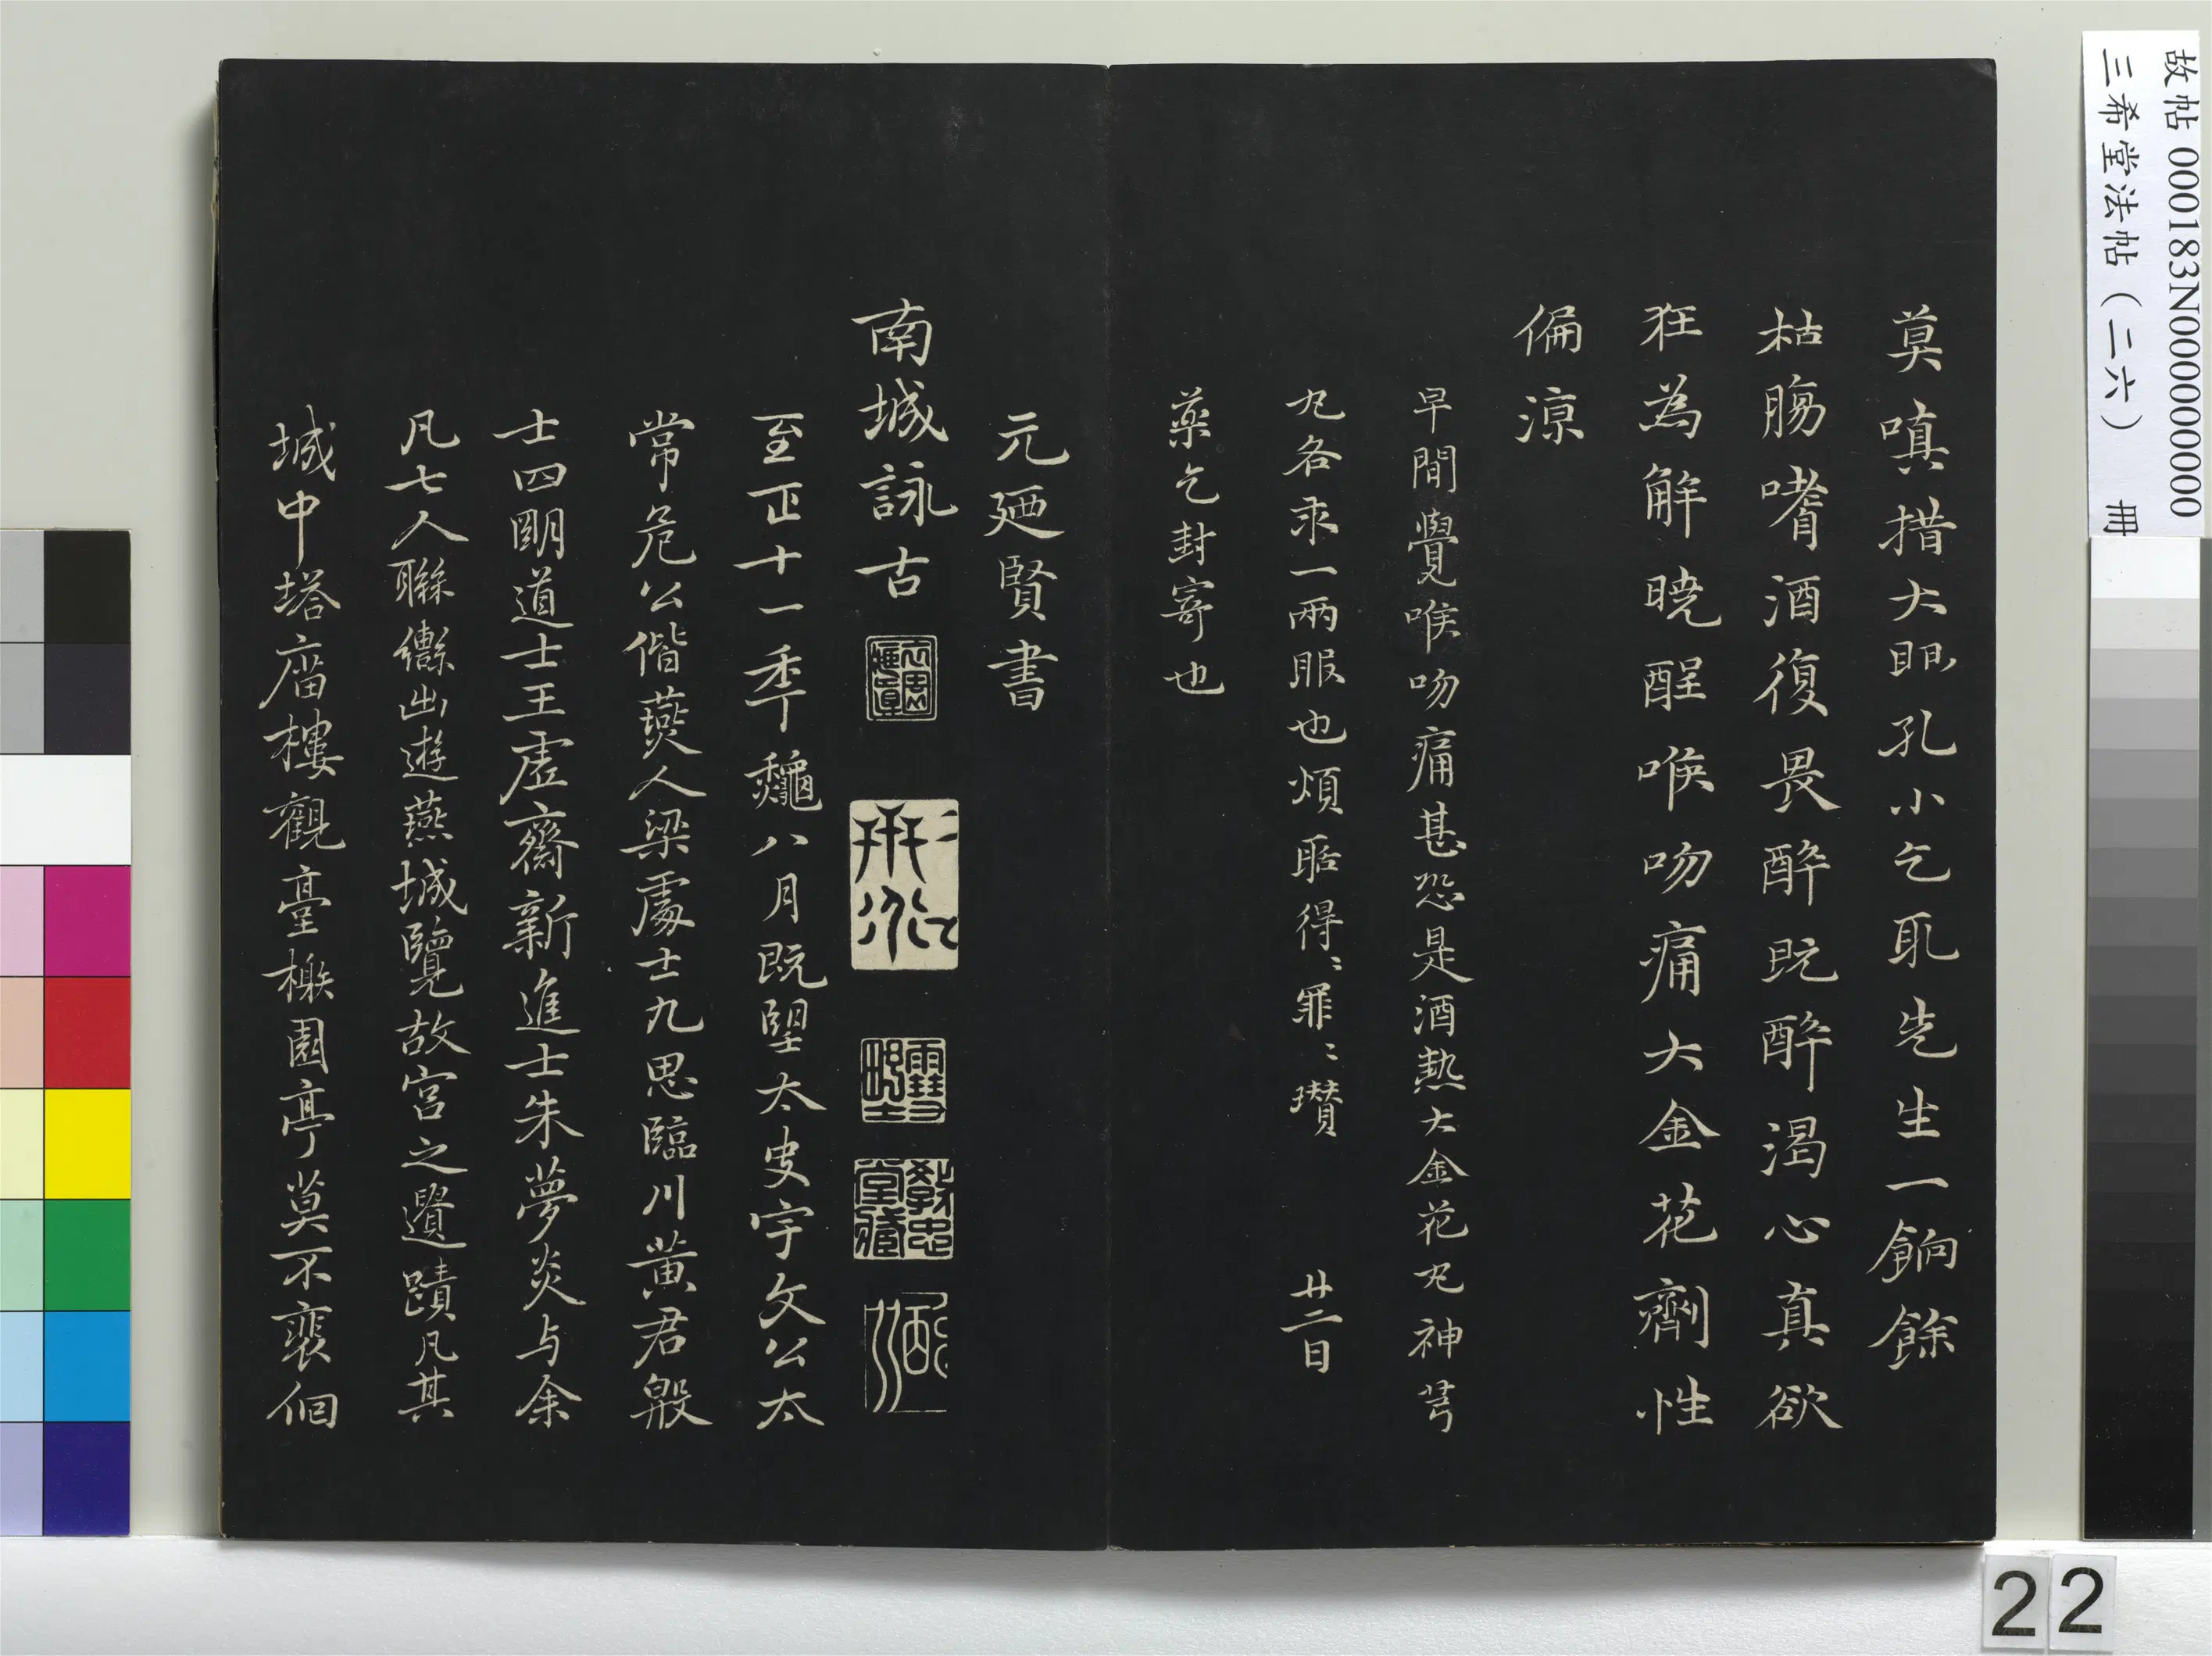 莫嗔措大眼孔小乞取先生一餉餘
枯腸嗜酒復畏醉既醉渴心真欲
狂為解曉酲喉吻痛大金花劑性
偏涼
早間覺喉吻痛甚恐是酒熱大金花丸神芎
丸各求一兩服也煩聒得〻罪〻瓚 廿二日
藥乞封寄也
元廼賢書
南城詠古
至正十一年龝八月既朢太史宇文公太
常危公偕燕人梁處士九思臨川黃君殷
士四明道士王虛齋新進士朱夢炎与余
凡七人聯轡出遊燕城覽故宮之遺蹟凡其
城中塔廟樓觀臺榭園亭莫不裵佪
故帖 000183N000000000
三希堂法帖（二六） 冊
22